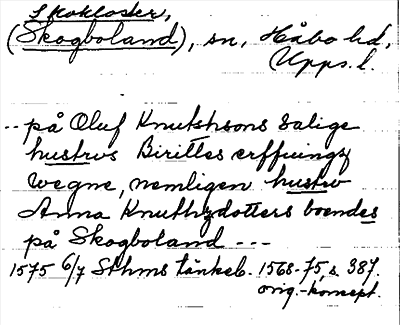 Skokloster,
(Skogboland), sn, Håbo hd,
Upps. l.
-- på Oluf Knutshsons salige
hustrvs Birittes erffuings
wegne, nemligen hustrv
Anna Knuthzdotters boendes
på Skogboland ---
1575 6/7 Sthms tänkeb. 1568-75, s. 387.
orig.-koncept.